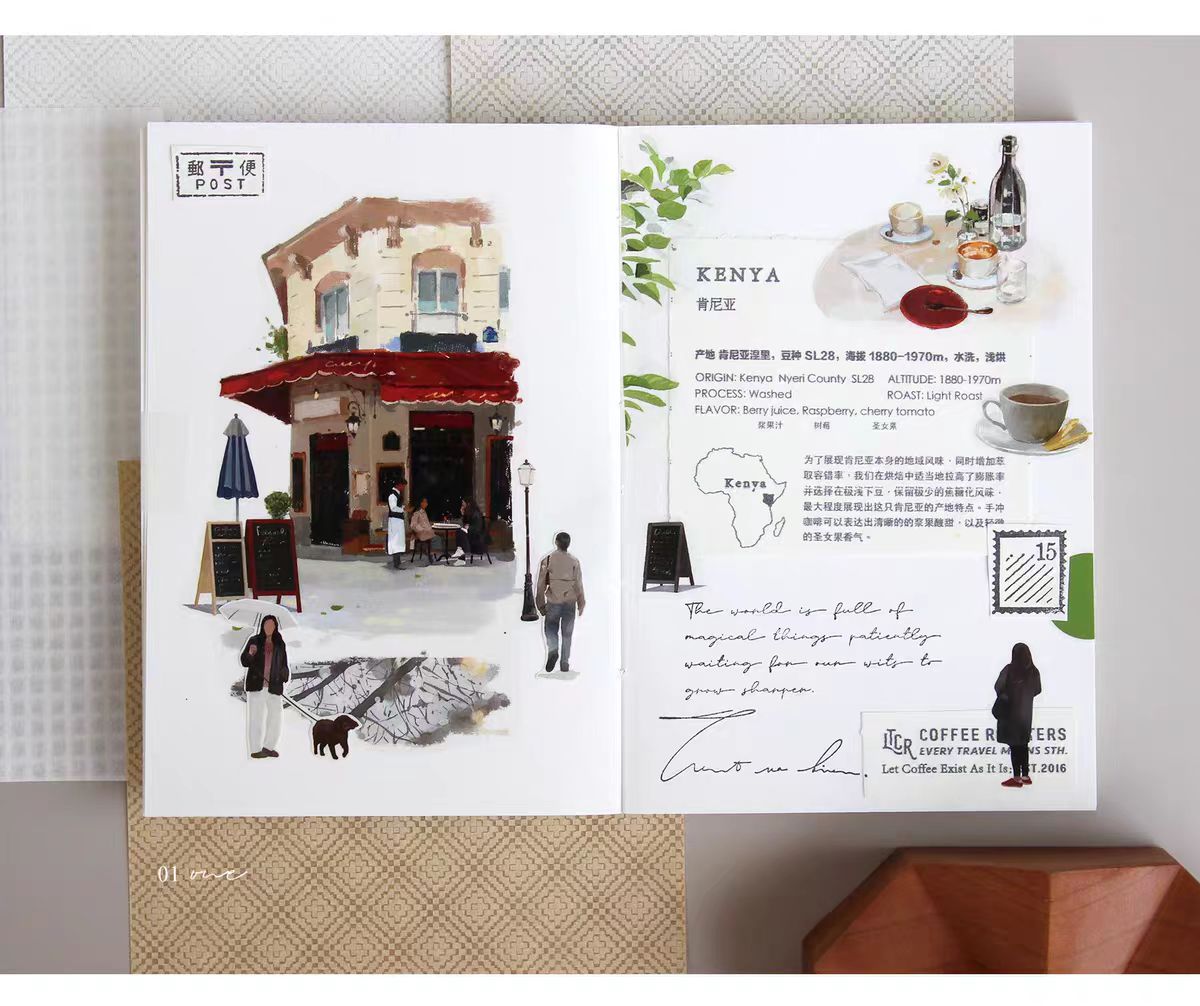 郵〒便
POST
KENYA
肯尼亚
产地 肯尼亚涅里，豆种 SL28，海拔 1880-1970m，水洗，浅烘
ORIGIN: Kenya Nyeri County SL28 ALTITUDE: 1880-1970m
PROCESS: Washed ROAST: Light Roast
FLAVOR: Berry juice, Raspberry, cherry tomato
浆果汁 树莓 圣女果
Kenya
为了展现肯尼亚本身的地域风味，同时增加萃
取容错率，我们在烘焙中适当地拉高了膨胀率
并选择在极浅下豆，保留极少的焦糖化风味，
最大程度展现出这只肯尼亚的产地特点。手冲
咖啡可以表达出清晰的的浆果酸甜，以及轻微
的圣女果香气。
15
The world is full of
magical things patiently
waiting for our wits to
grow sharper.
Tout va bien.
LTCR COFFEE R TERS
EVERY TRAVEL M NS STH.
Let Coffee Exist As It Is. EST.2016
01 one